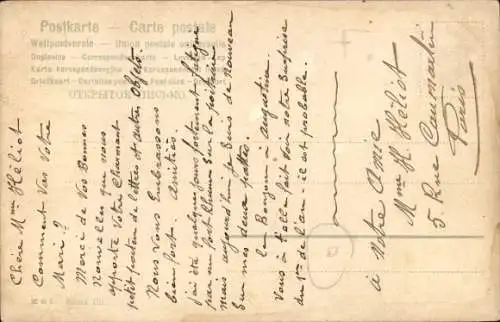 Postkarte — Carte postale
Weltpostverein — Union postale universelle
Dopisnice — Correspondenzkarte
Karta korespondencyjna
Briefkaart
ОТКРЫТОЕ ПИСЬМО
Chère Mme Héliot
Comment Vas Votre
Mari ?
Merci de Vos Bonnes
Nouvelles que nous
apporte Votre Charmant
petit porteur de lettres et autre objets
Nous Vous Embrassons
bien fort. Amitiés.
j'ai été quelque jours fortement fatigué
par un fort Rhume Sur la poitrine
mais aujourd'hui je Suis de nouveau
Sur mes deux pattes.
Le Bonjour à augustine
Vous à t'elle fait voir notre Surprise
du 1er de l'an. il est probable.
à Notre Amie
Mme H. Héliot
5. Rue Caumartin
Paris